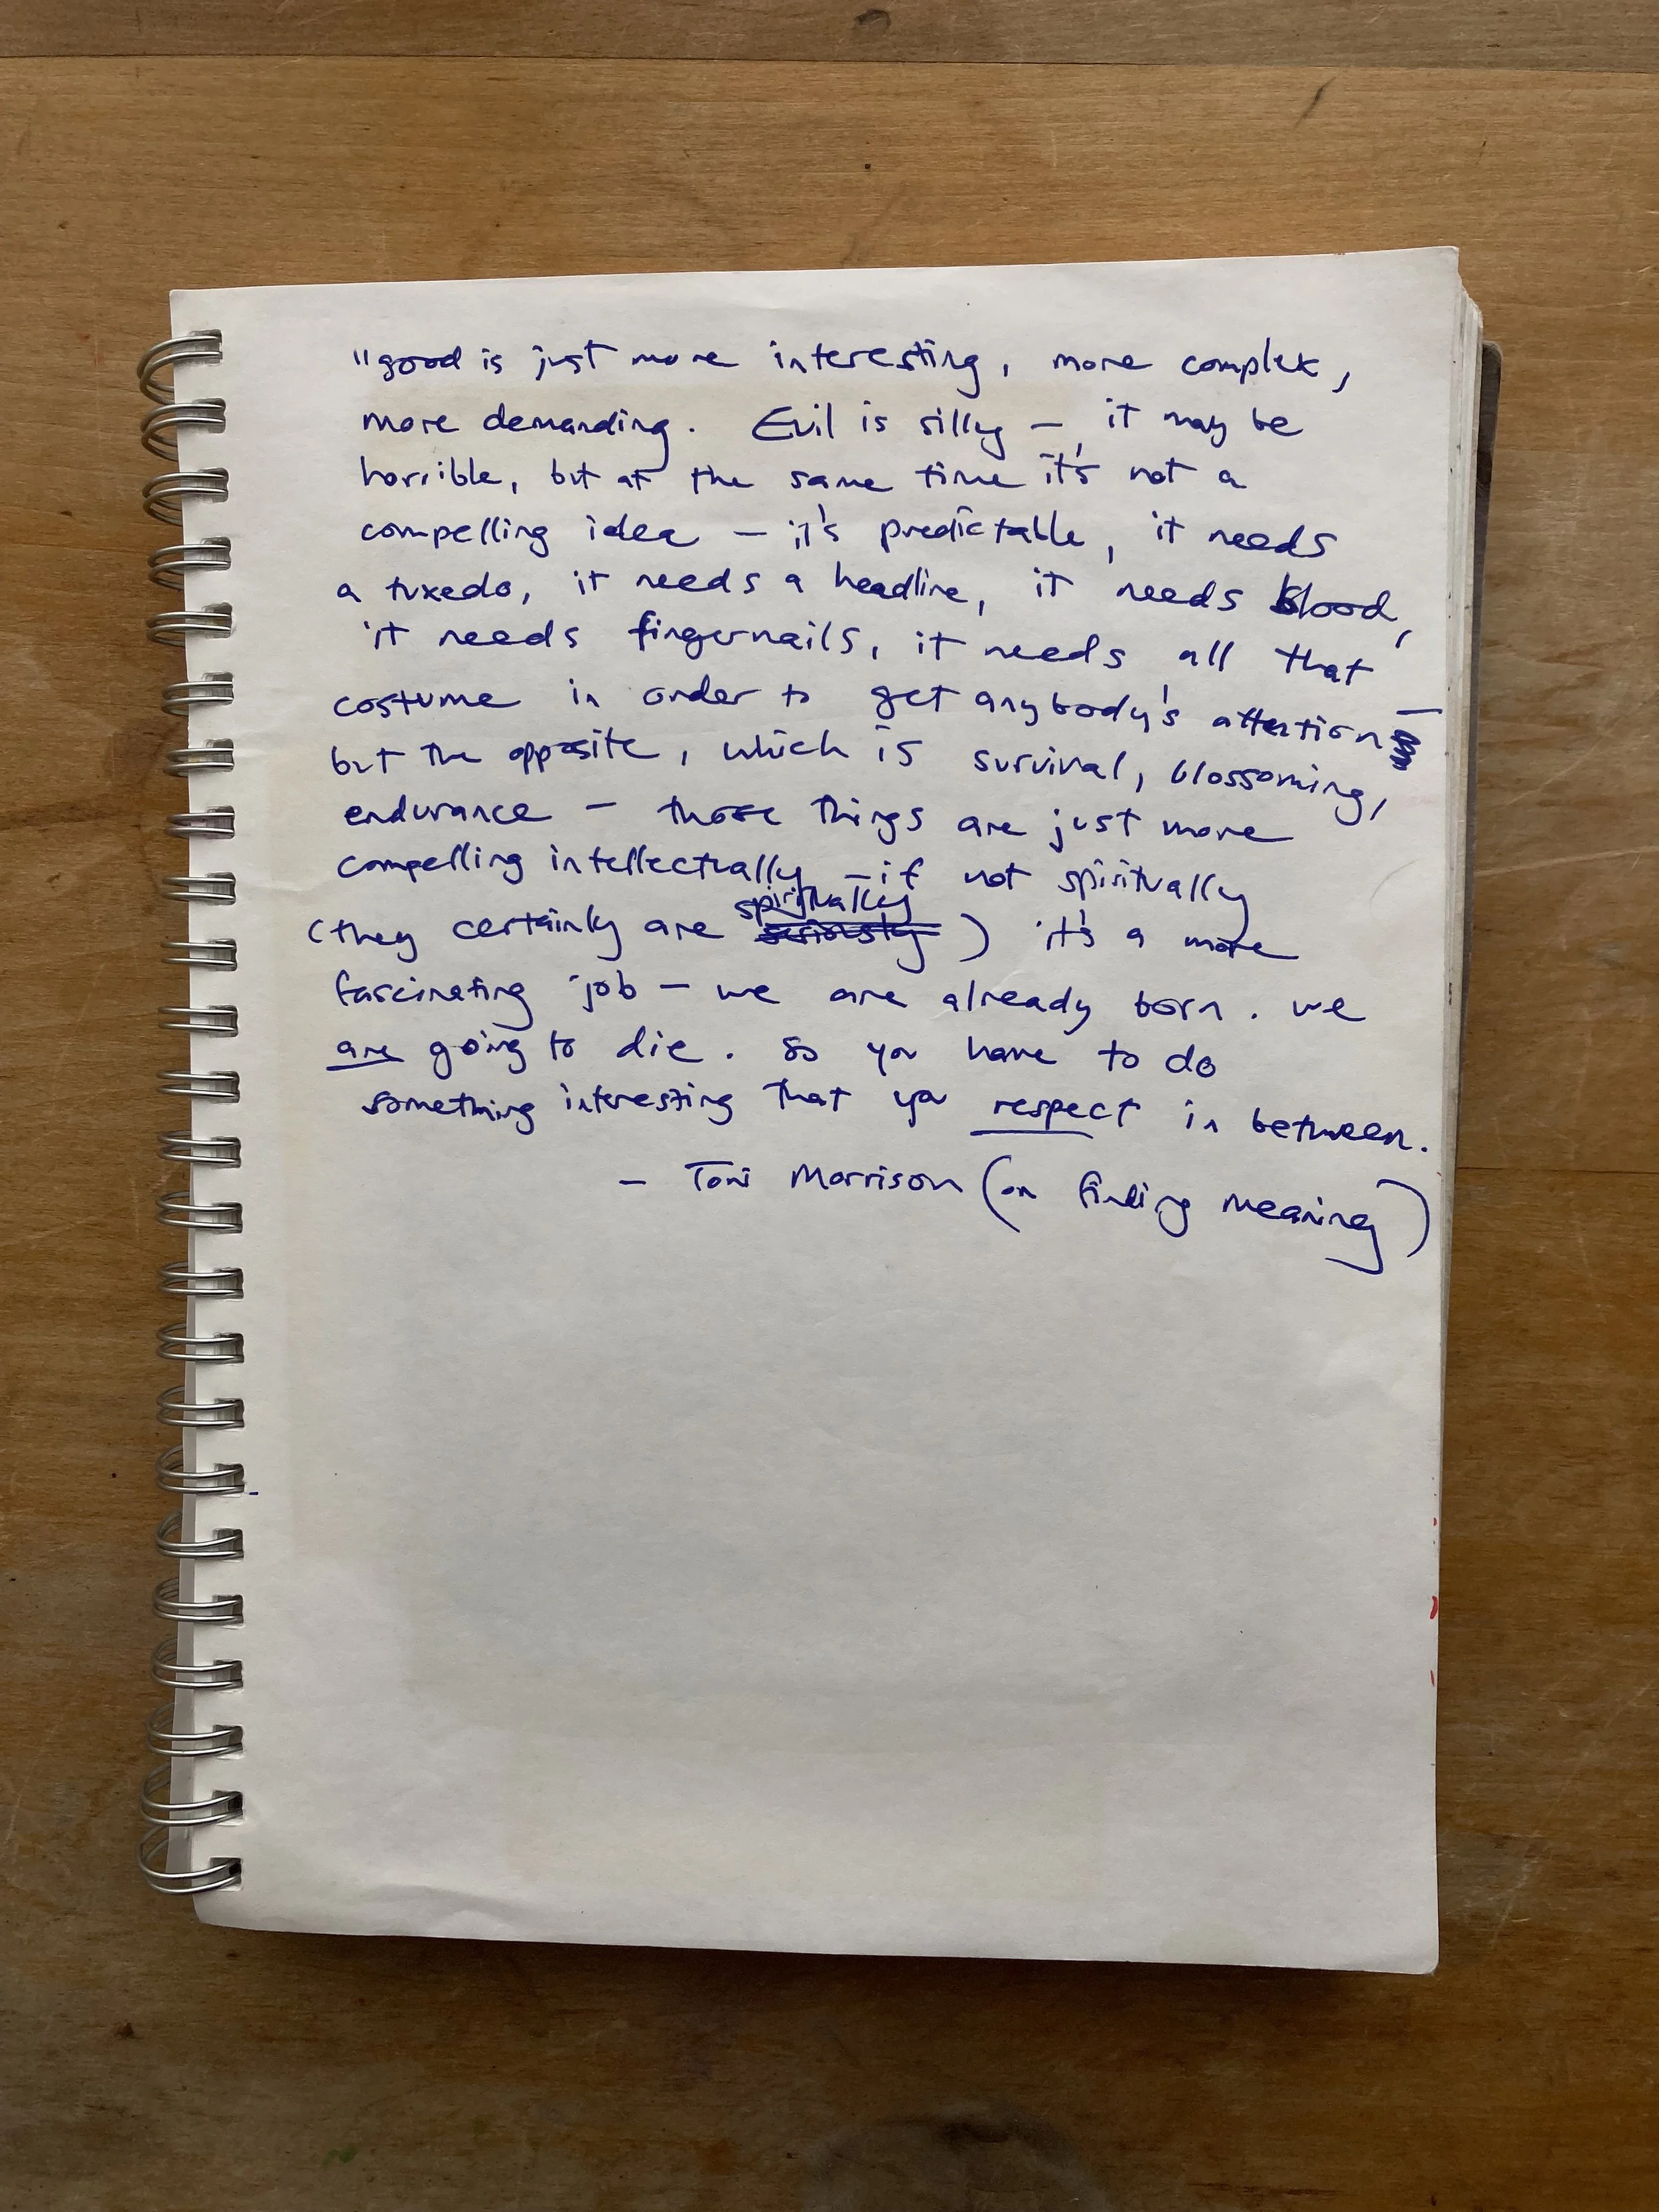 "good is just more interesting, more complex,
more demanding. Evil is silly — it may be
horrible, but at the same time it's not a
compelling idea — it's predictable, it needs
a tuxedo, it needs a headline, it needs blood,
it needs fingernails, it needs all that
costume in order to get anybody's attention —
but the opposite, which is survival, blossoming,
endurance — those things are just more
compelling intellectually — if not spiritually
spiritually
(they certainly are seriously) it's a more
fascinating job — we are already born. we
are going to die. So you have to do
something interesting that you respect in between.
— Toni Morrison (on finding meaning)